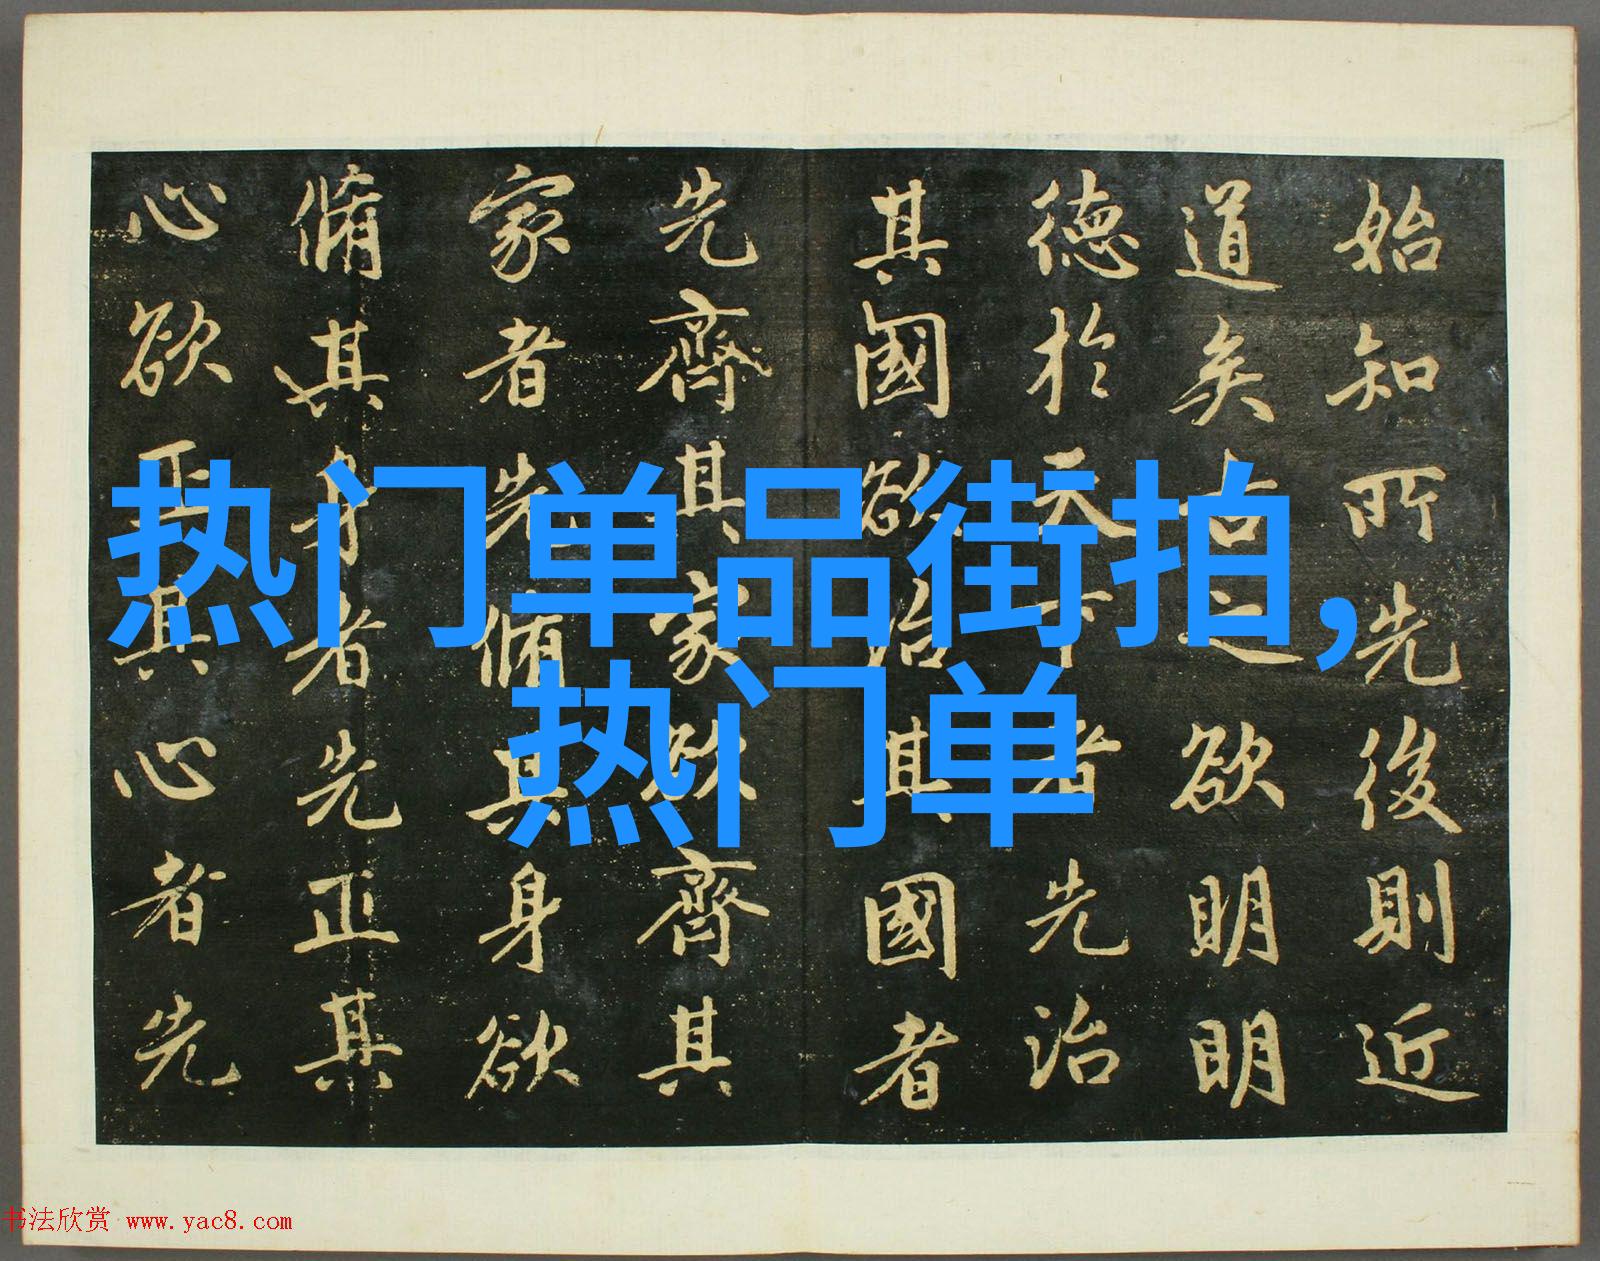 始知所先後則近
道矣古之欲明明
德於天下者先治
其國欲治其國者
先齊其家欲齊其
家者先脩其身欲
脩其身者先正其
心欲正其心者先
热门单品街拍,
热门单
书法欣赏 www.yac8.com